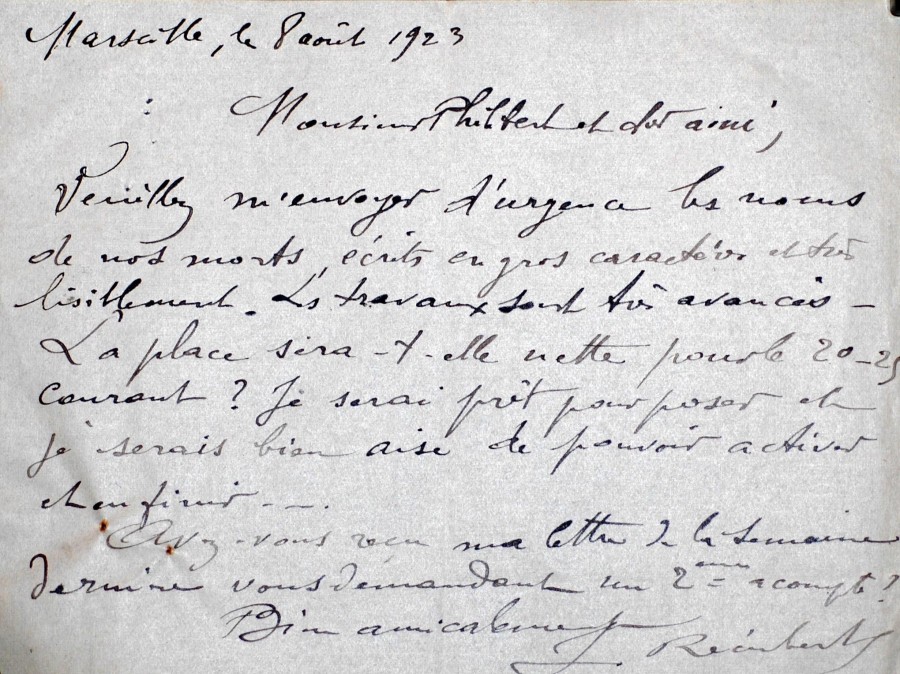 Marseille, le 8 août 1923
Monsieur Philibert et cher ami,
Veuillez m'envoyer d'urgence les noms
de nos morts, écrits en gros caractères et très
lisiblement. Les travaux sont très avancés -
La place sera-t-elle nette pour le 20-25
courant ? Je serai prêt pour poser et
je serais bien aise de pouvoir activer
et en finir ---.
Avez-vous reçu ma lettre de la semaine
dernière vous demandant un 2ème acompte ?
Bien amicalement